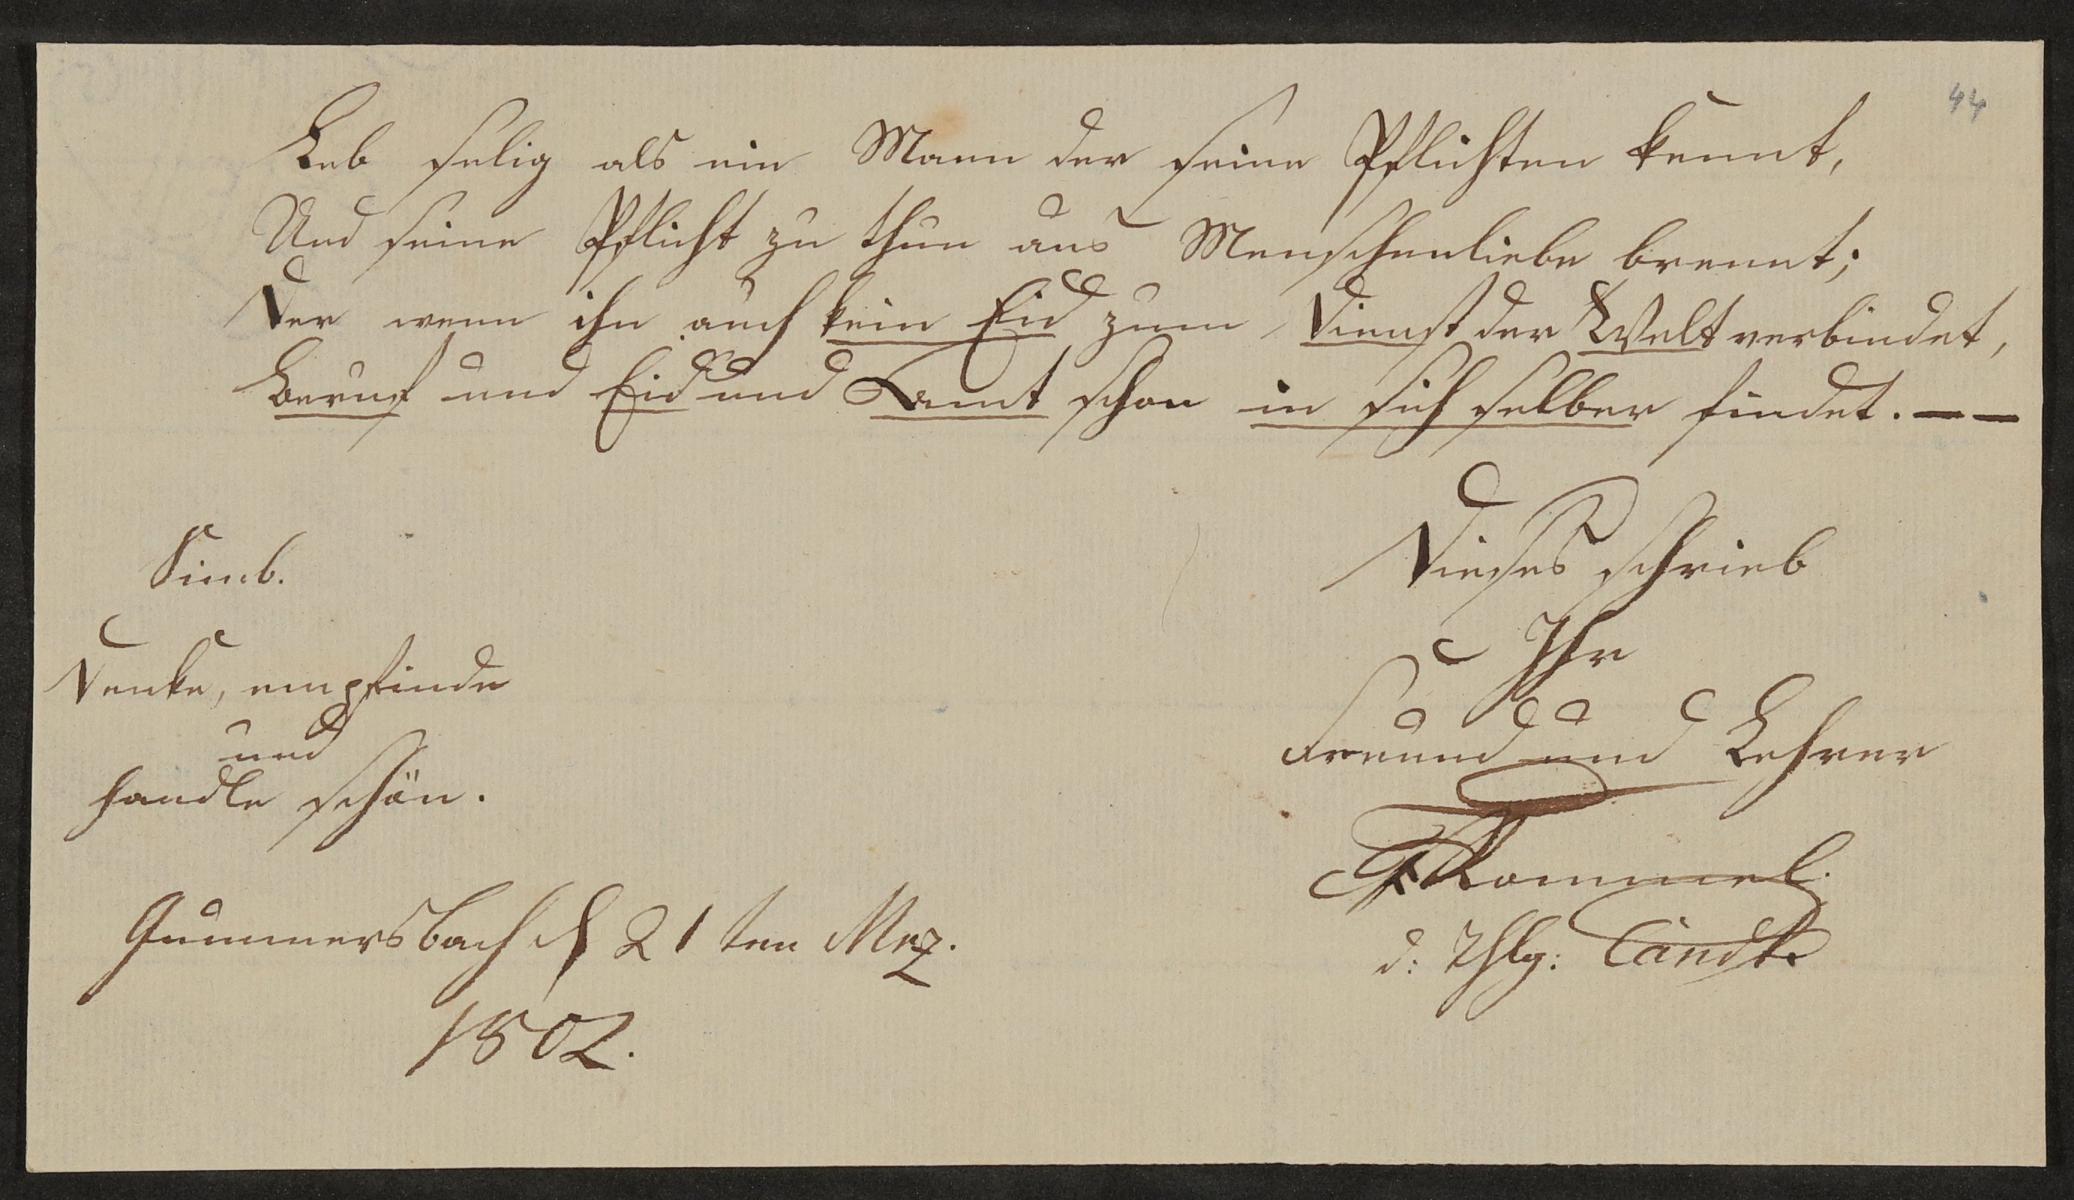 44
Leb selig als ein Mann der seine Pflichten kennt,
Und seine Pflicht zu thun aus Menschenliebe brennt;
Der wenn ihn auch kein Eid zum Dienst der Welt verbindet,
Beruf und Eid und Amt schon in sich selber findet. — —
Simb.
Denke, empfinde
und
handle schön.
Gummersbach d 21ten Mrz.
1802.
Dieses schrieb
Ihr
Freund und Lehrer
Rommel.
d: Thlg: Candt.